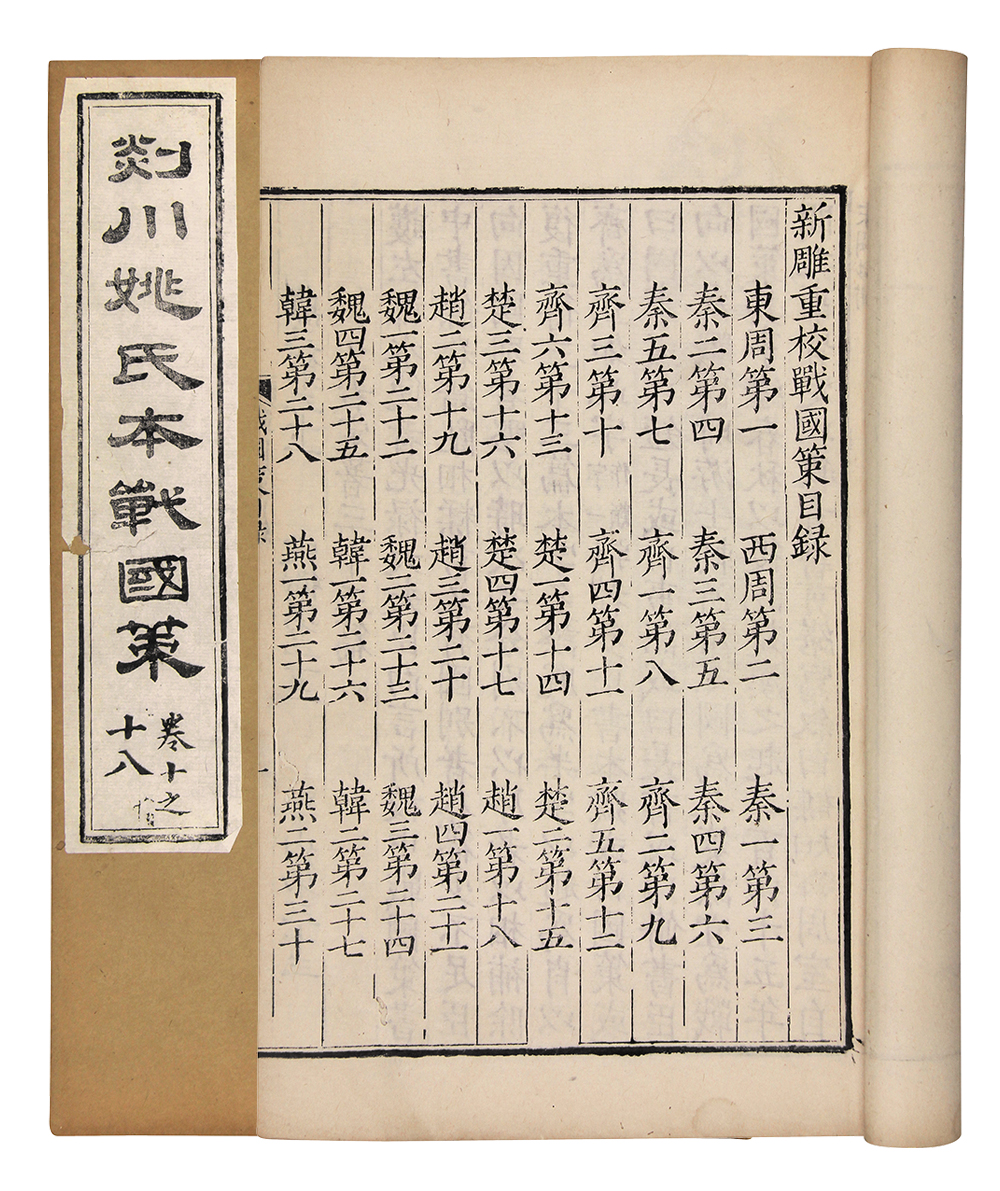 新雕重校戰國策目録
東周第一 西周第二 秦一第三
秦二第四 秦三第五 秦四第六
秦五第七 齊一第八 齊二第九
齊三第十 齊四第十一 齊五第十二
齊六第十三 楚一第十四 楚二第十五
楚三第十六 楚四第十七 趙一第十八
趙二第十九 趙三第二十 趙四第二十一
魏一第二十二 魏二第二十三 魏三第二十四
魏四第二十五 韓一第二十六 韓二第二十七
韓三第二十八 燕一第二十九 燕二第三十
戰國策目録 一
剡川姚氏本戰國策
卷十之
十八